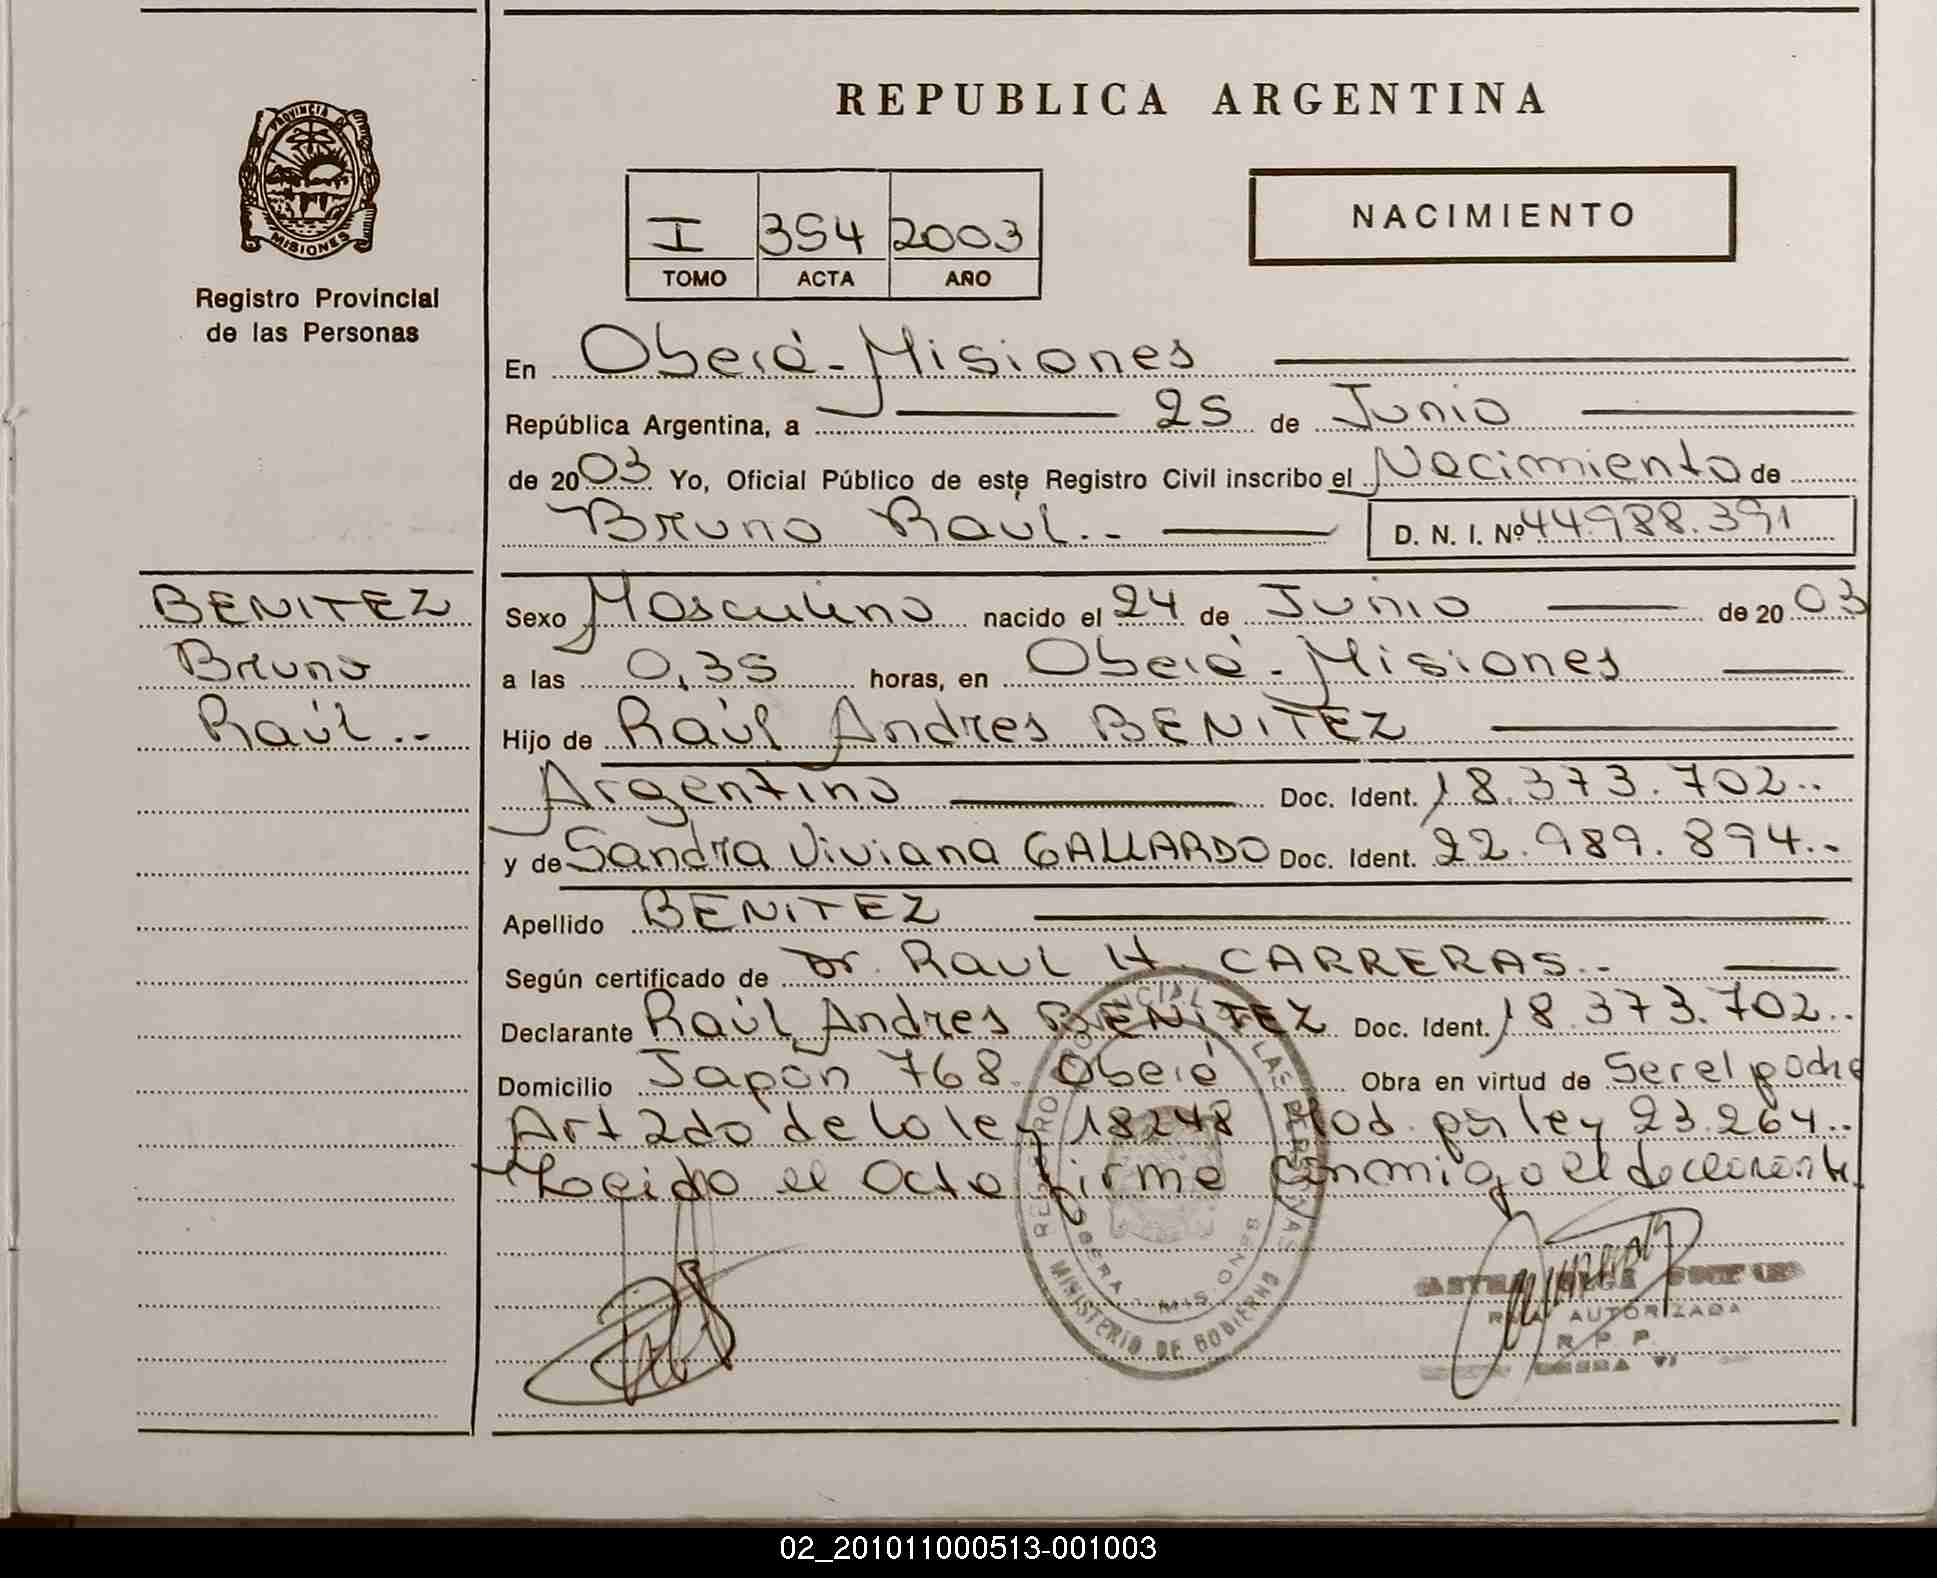 REPUBLICA ARGENTINA
PROVINCIA DE
MISIONES
Registro Provincial
de las Personas
I 354 2003
TOMO ACTA AÑO
NACIMIENTO
En Oberá-Misiones
República Argentina, a 25 de Junio
de 2003 Yo, Oficial Público de este Registro Civil inscribo el Nacimiento de
Bruno Raúl..- D. N. I. Nº 44.988.391
BENITEZ
Bruno
Raúl..-
Sexo Masculino nacido el 24 de Junio de 2003
a las 0,35 horas, en Oberá-Misiones
Hijo de Raúl Andres BENITEZ
Argentino Doc. Ident. 18.373.702..
y de Sandra Viviana GALLARDO Doc. Ident. 22.989.894..-
Apellido BENITEZ
Según certificado de Dr. Raul H. CARRERAS.-
Declarante Raúl Andres BENITEZ Doc. Ident. 18.373.702..
Domicilio Japón 768. Oberá Obra en virtud de Ser el padre
Art 2do de la ley 18248 Mod. por ley 23.264..
Leido el Acta firma conmigo el declarante.
REGISTRO PROVINCIAL DE LAS PERSONAS
OBERA - MISIONES
MINISTERIO DE GOBIERNO
AUTORIZADA
R. P. P.
OBERA
02_201011000513-001003